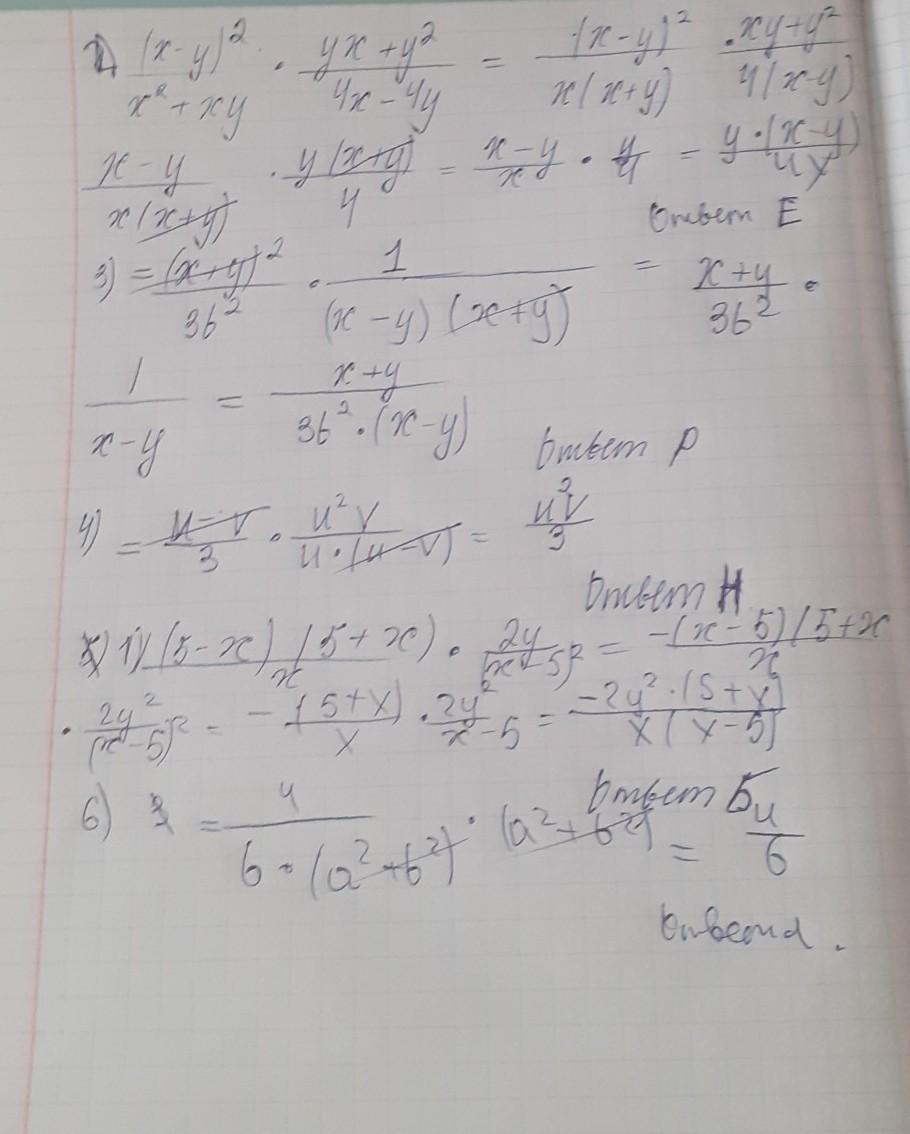 1) (x-y)²/x²+xy · yx+y²/4x-4y = (x-y)²/x(x+y) · xy+y²/4(x-y)
x-y/x(x+y) · y(x+y)/4 = x-y/x · y/4 = y·(x-y)/4x
Ответ E
3) = (x+y)²/3b² · 1/(x-y)(x+y) = x+y/3b² ·
1/x-y = x+y/3b²·(x-y)
Ответ P
4) = u-v/3 · u²v/u·(u-v) = u²v/3
Ответ H
5) (5-x)(5+x)/x · 2y/(x-5)² = -(x-5)(5+x/x
· 2y²/(x-5)² = -(5+x)/x · 2y²/x-5 = -2y²·(5+x)/x(x-5)
Ответ Б
6) = 4/6·(a²+b²) · (a²+b²) = 4/6
Ответ